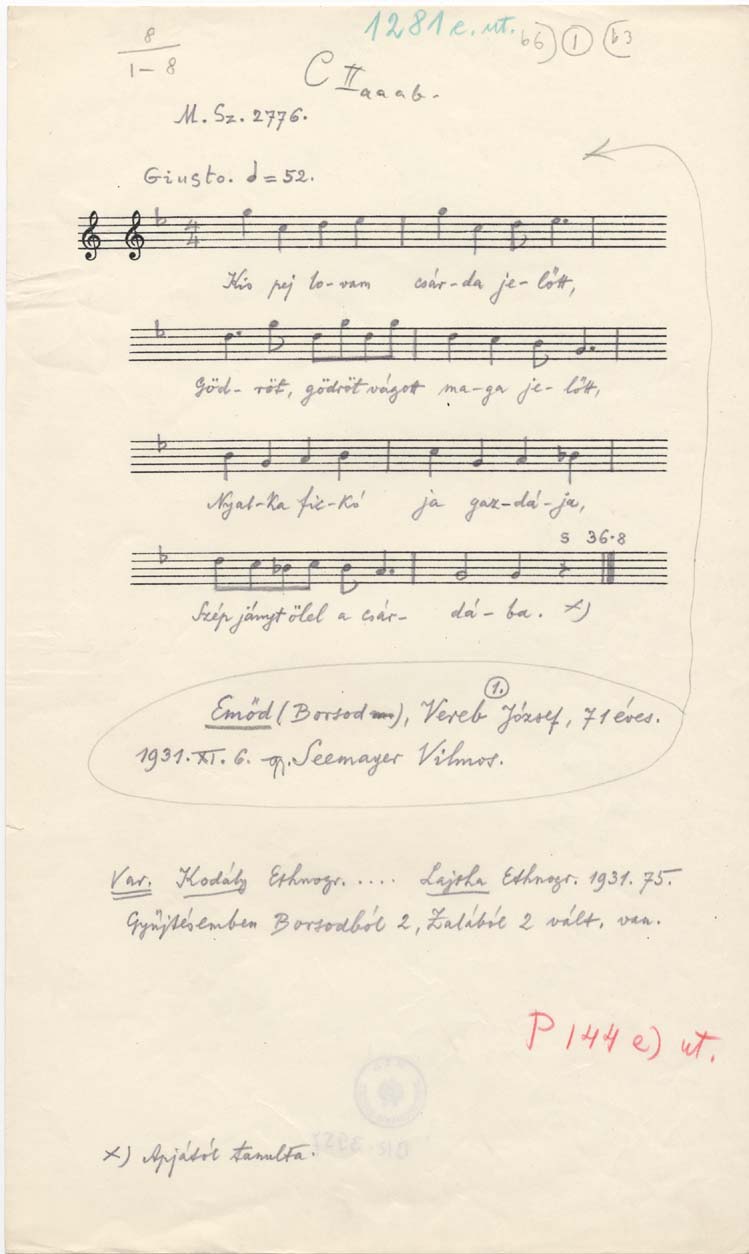 8
1281 e. ut. b6) 1 (b3
1-8
C II aaab.
M. Sz. 2776.
Giusto. = 52.
4
4
Kis pej lo-vam csár-da je-lőtt,
Göd-röt, gödröt vágott ma-ga je-lőtt,
Nyal-ka fic-kó ja gaz-dá-ja,
S 36.8
Szép jányt ölel a csár- dá-ba. x)
1.
Emőd (Borsod), Vereb József, 71 éves.
1931. XI. 6. gy. Seemayer Vilmos.
Var. Kodály Ethnogr. .... Lajtha Ethnogr. 1931. 75.
Gyűjtésemben Borsodból 2, Zalából 2 vált. van.
P 144 e) ut.
x) Apjától tanulta.